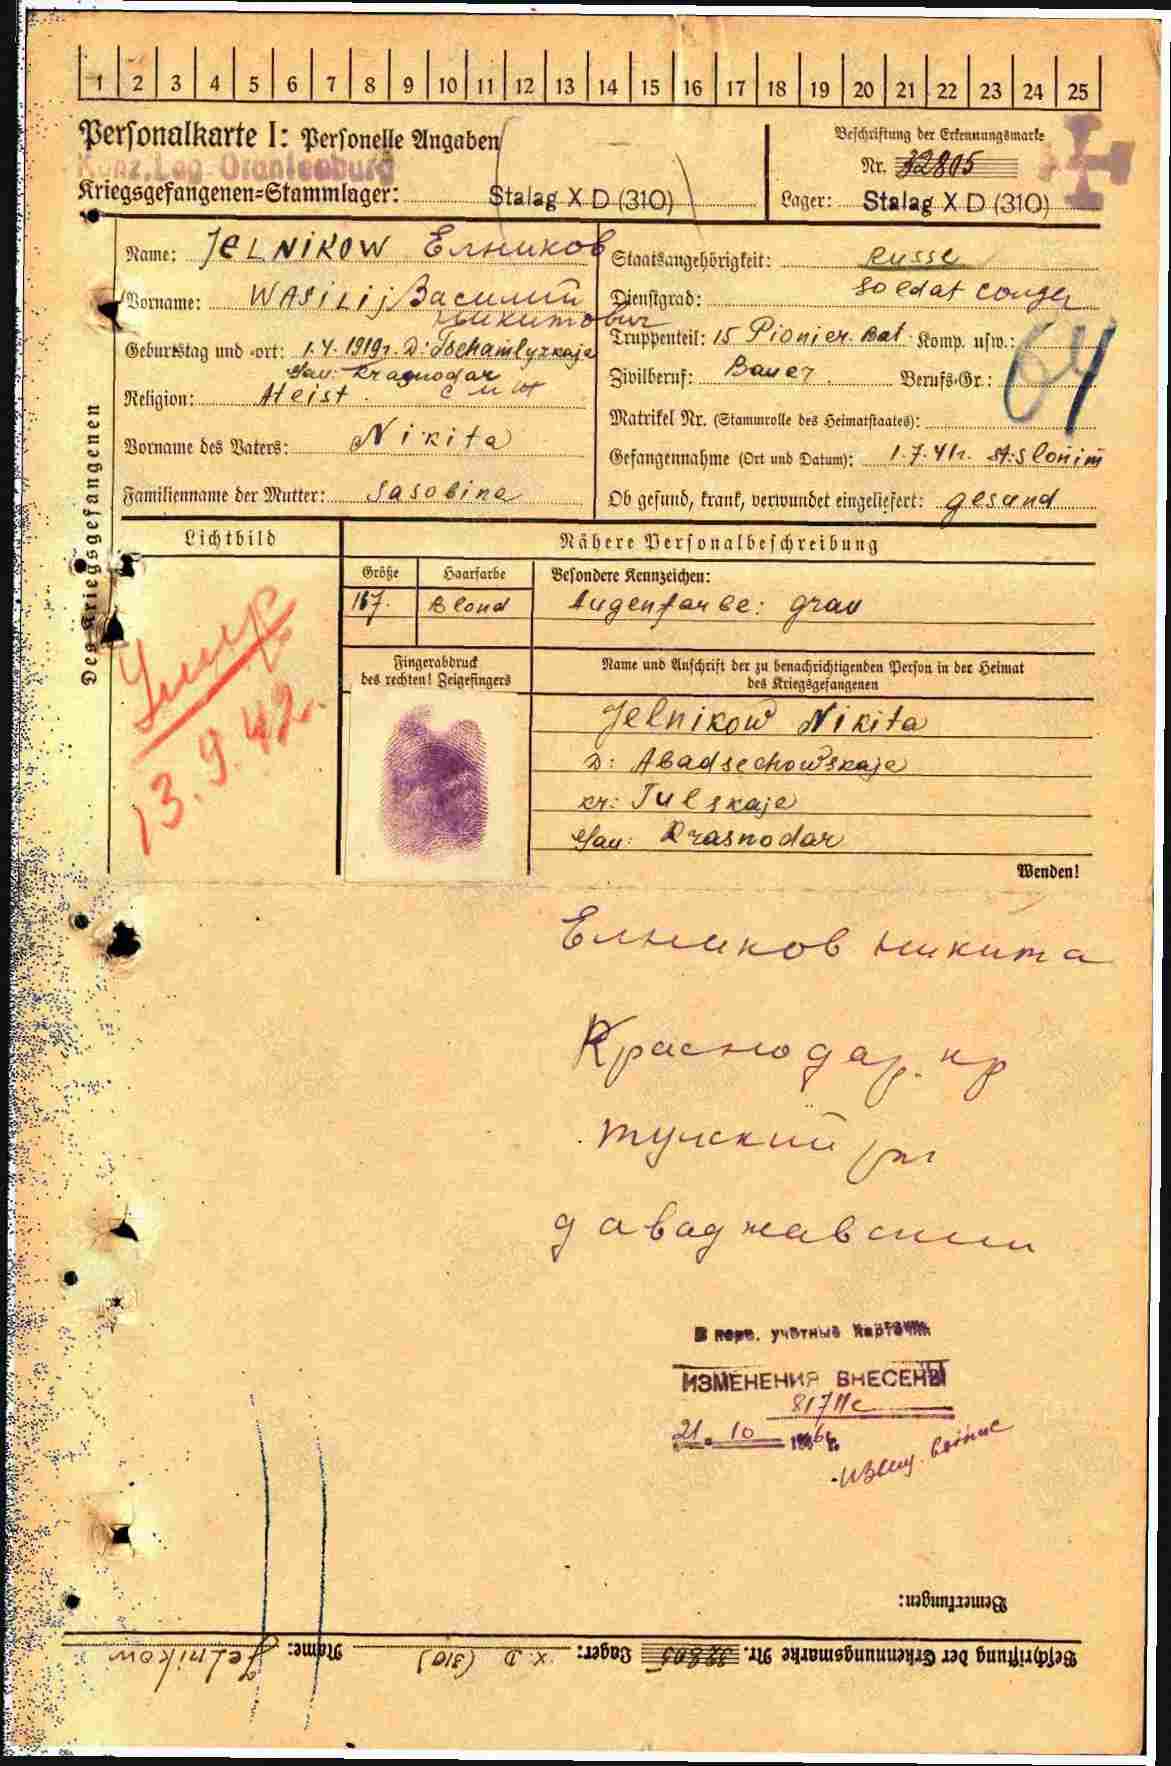 1 2 3 4 5 6 7 8 9 10 11 12 13 14 15 16 17 18 19 20 21 22 23 24 25
Personalkarte I: Personelle Angaben
Beschriftung der Erkennungsmarke
Konz.Lag. Oranienburg
Nr. 32805
Kriegsgefangenen=Stammlager: Stalag X D (310)
Lager: Stalag X D (310)
Des Kriegsgefangenen
Name: JELNIKOW Елников
Staatsangehörigkeit: Russe
Vorname: WASILIJ Василий
Никитович
Dienstgrad: Soldat
Geburtstag und =ort: 1.4.1919г. D: Tschamlyzkaje
Gau: Krasnodar
Truppenteil: 15 Pionier. Bat. Komp. usw.:
64
Religion: Ateist.
Zivilberuf: Bauer. Berufs=Gr.:
Matrikel Nr. (Stammrolle des Heimatstaates):
Vorname des Vaters: Nikita
Gefangennahme (Ort und Datum): 1.7.41г. st: Slonim
Familienname der Mutter: Sasobina
Ob gesund, krank, verwundet eingeliefert: gesund
Lichtbild
Nähere Personalbeschreibung
Größe Haarfarbe Besondere Kennzeichen:
167. Blond Augenfarbe: grau
Fingerabdruck
des rechten! Zeigefingers
Name und Anschrift der zu benachrichtigenden Person in der Heimat
des Kriegsgefangenen
13.9.42.
Jelnikow Nikita
D: Abadsechowskaje
kr: Tulskaje
Gau: Krasnodar
Wenden!
Елников Никита
Краснодар. кр
тулский
В перв. учётные карточки
ИЗМЕНЕНИЯ ВНЕСЕНЫ
21. 10
Bemerkungen:
Beschriftung der Erkennungsmarke Nr. 32805 Lager: X D (310) Name: Jelnikow